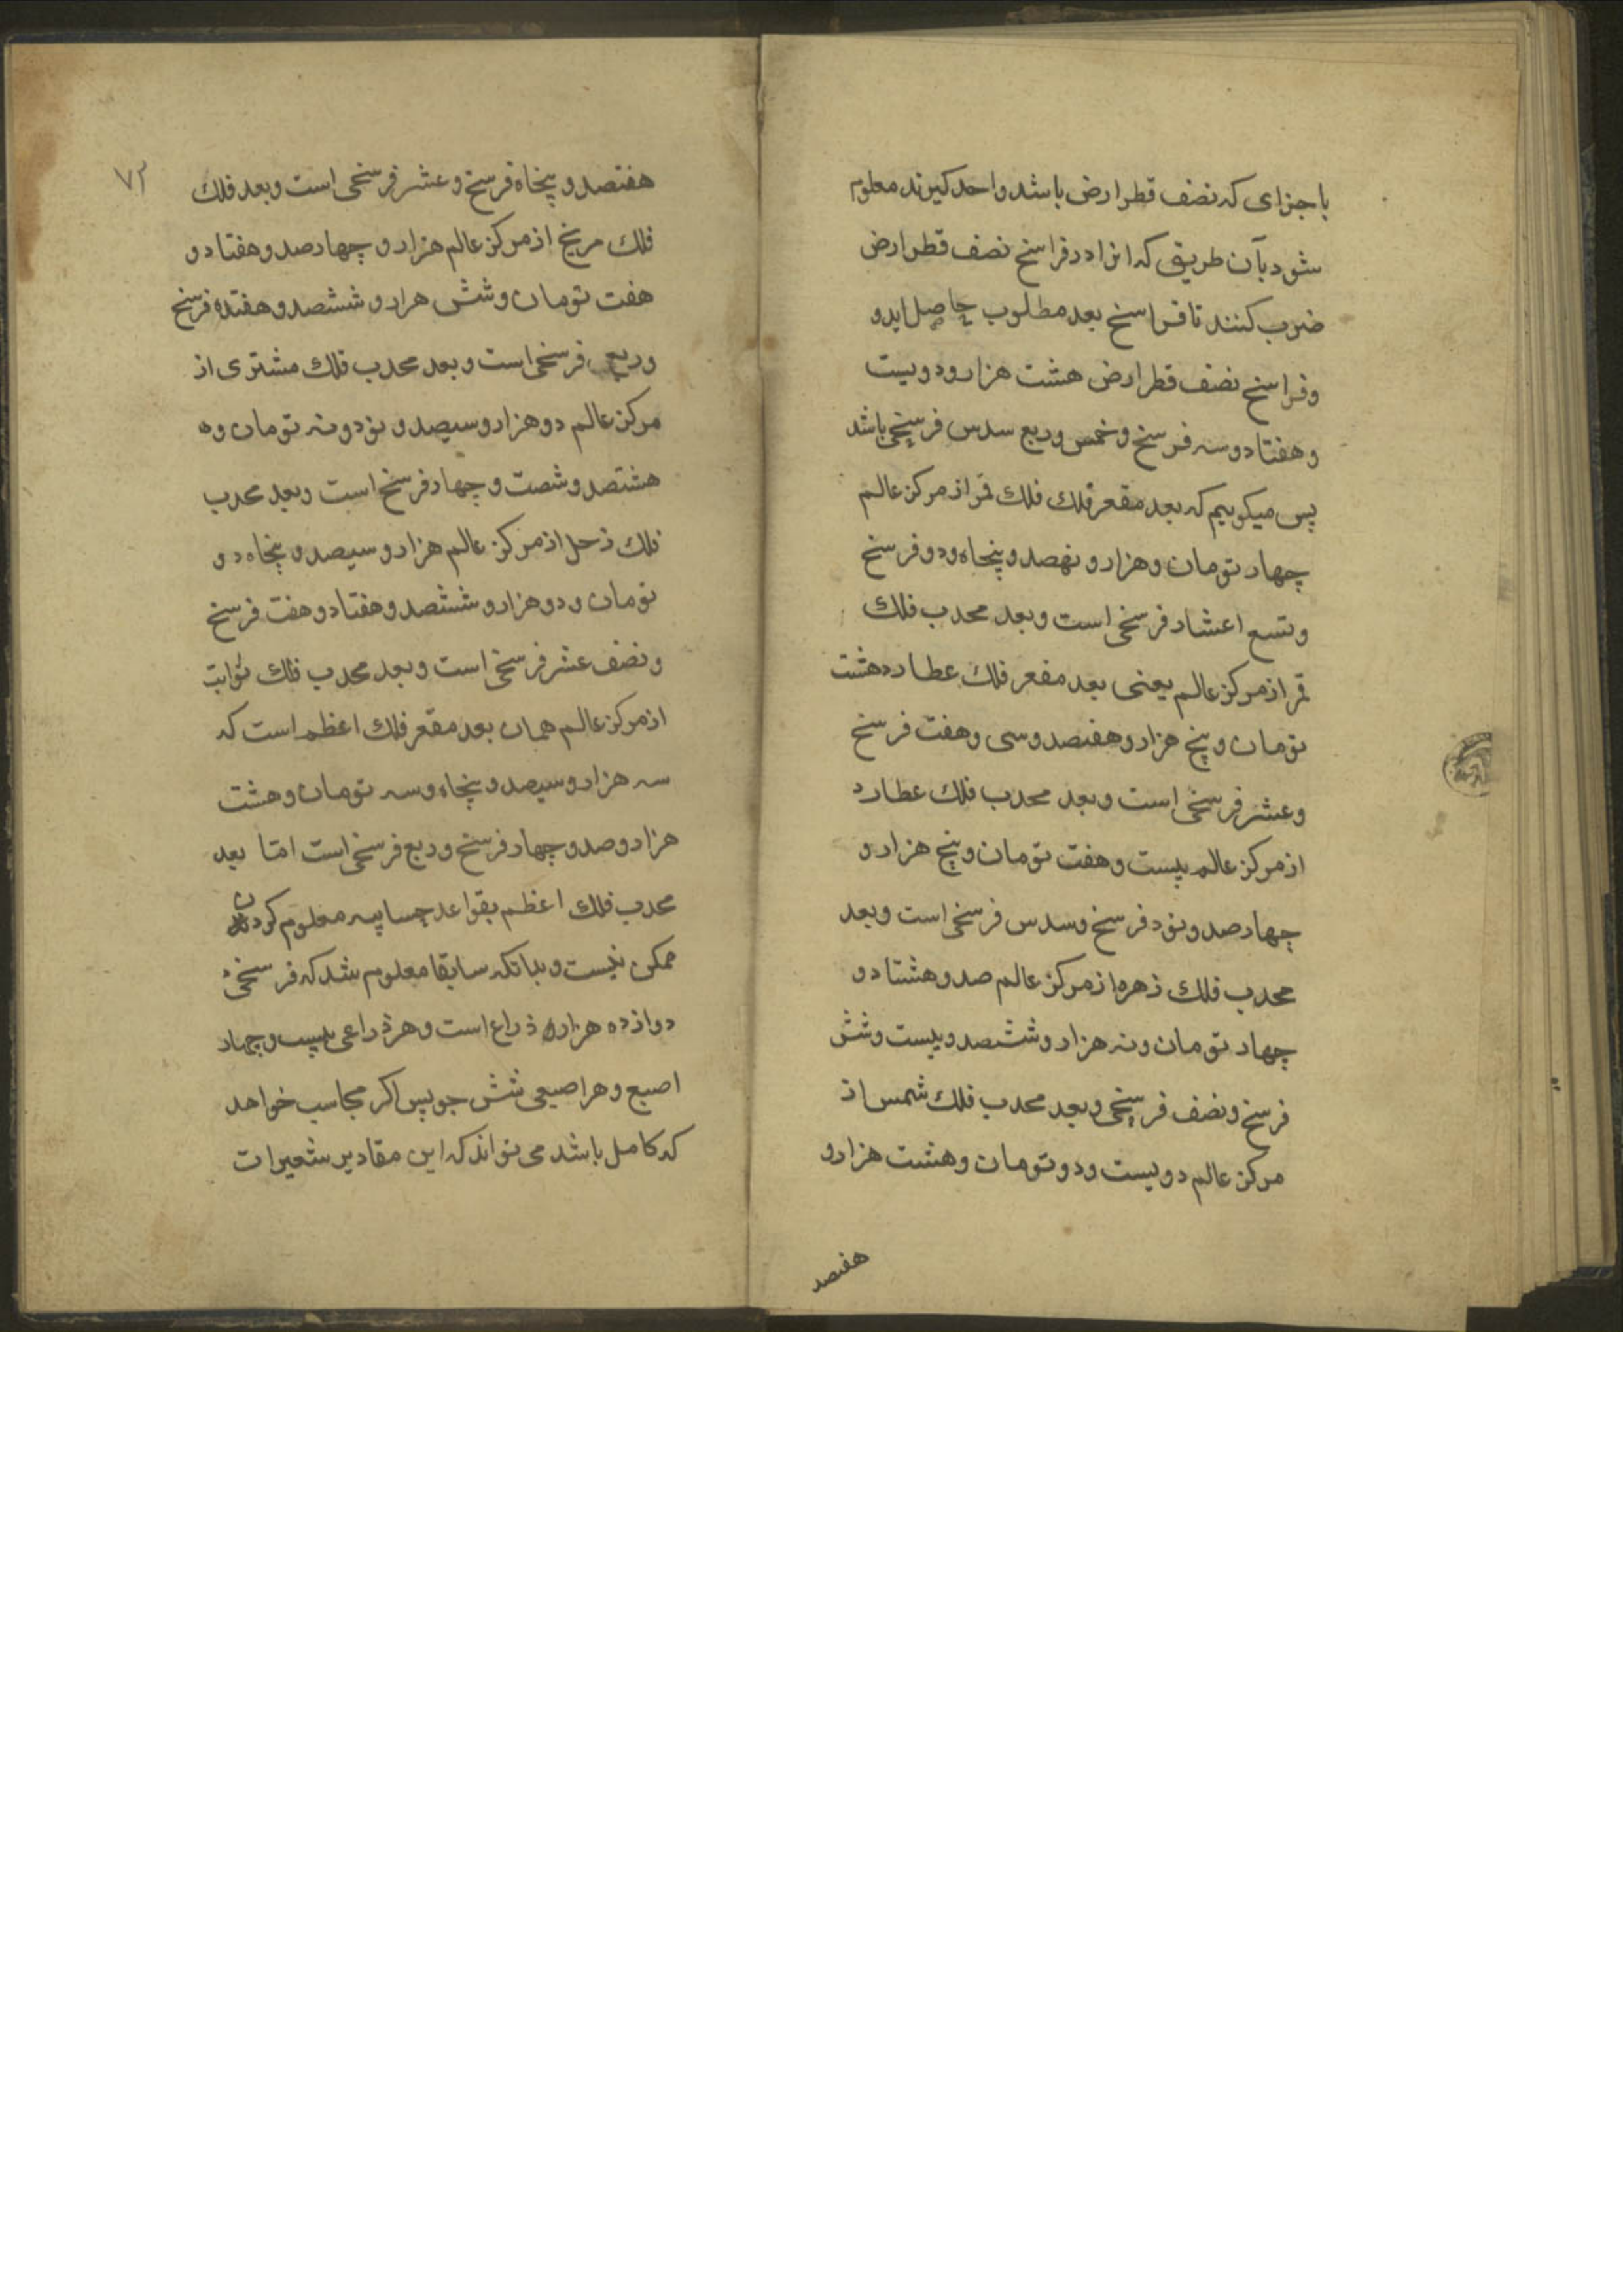 باجزای که نصف قطر ارض باشد واحد کیرند معلوم
شود بآن طریق که انرا در فراسخ نصف قطر ارض
ضرب کنند تا فراسخ بعد مطلوب حاصل اید و
وفراسخ نصف قطر ارض هشت هزار و دویست
و هفتاد و سه فرسخ و خمس و ربع سدس فرسخی باشد
پس میکوییم که بعد مقعر فلك فلك قمر از مرکز عالم
چهار تومان و هزار و نهصد و پنجاه و دو فرسخ
و تسع اعشار فرسخی است و بعد محدب فلك
قمر از مرکز عالم یعنی بعد مقعر فلك عطارد هشت
تومان و پنج هزار و هفتصد و سی و هفت فرسخ
و عشر فرسخی است و بعد محدب فلك عطارد
از مرکز عالم بیست و هفت تومان و پنج هزار و
چهارصد و نود فرسخ و سدس فرسخی است و بعد
محدب فلك زهره از مرکز عالم صد و هشتاد و
چهار تومان و نه هزار و ششصد و بیست و شش
فرسخ و نصف فرسخی و بعد محدب فلك شمس از
مرکز عالم دویست و دو تومان و هشت هزار و
هفتصد
۷۳
هفتصد و پنجاه فرسخ و عشر فرسخی است و بعد فلك
فلك مریخ از مرکز عالم هزار و چهارصد و هفتاد و
هفت تومان و شش هزار و ششصد و هفتده فرسخ
و ربع فرسخی است و بعد محدب فلك مشتری از
مرکز عالم دو هزار و سیصد و نود و نه تومان و
هشتصد و شصت و چهار فرسخ است و بعد محدب
فلك زحل از مرکز عالم هزار و سیصد و پنجاه و
تومان و دو هزار و ششصد و هفتاد و هفت فرسخ
و نصف عشر فرسخی است و بعد محدب فلك ثوابت
از مرکز عالم همان بعد مقعر فلك اعظم است که
سه هزار و سیصد و پنجاه و سه تومان و هشت
هزار و صد و چهار فرسخ و ربع فرسخی است اما بعد
محدب فلك اعظم بقواعد حسابیه معلوم کردن
ممکن نیست و بدانکه سابقا معلوم شد که فرسخی
دوازده هزار ذراع است و هر ذراعی بیست و چهار
اصبع و هر اصبعی شش جو پس اکر محاسب خواهد
که کامل باشد می تواند که این مقادیر شعیرات